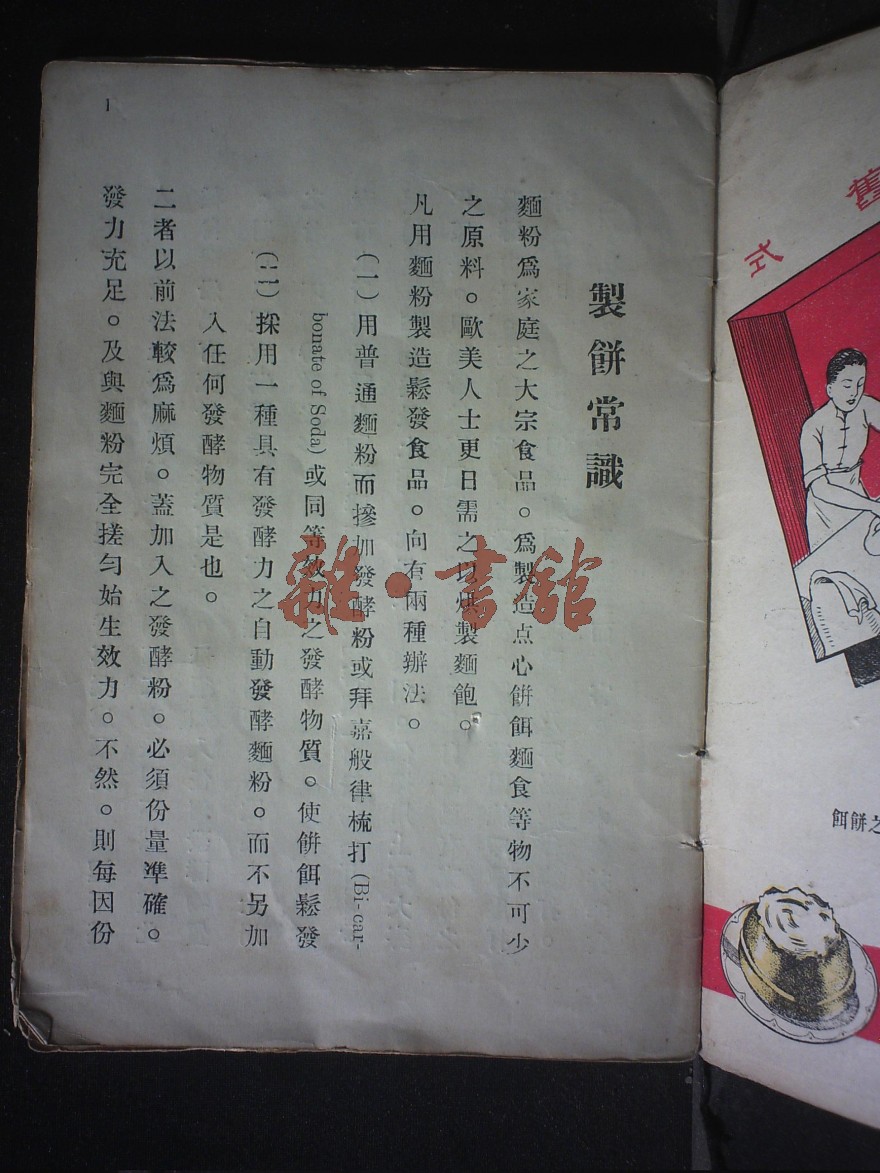 舊
式
之餅餌
製餅常識
麵粉爲家庭之大宗食品。爲製造点心餅餌麵食等物不可少
之原料。歐美人士更日需之以烘製麵飽。
凡用麵粉製造鬆發食品。向有兩種辦法。
(一)用普通麵粉而摻加發酵粉或拜嘉般律梳打(Bi-car-
bonate of Soda)或同等效力之發酵物質。使餅餌鬆發
(二)採用一種具有發酵力之自動發酵麵粉。而不另加
入任何發酵物質是也。
二者以前法較爲麻煩。蓋加入之發酵粉。必須份量準確。
發力充足。及與麵粉完全搓勻始生效力。不然。則每因份
1
雜·書館